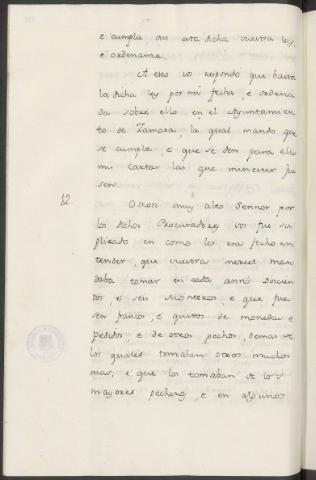 e cumpla en esta dicha vuestra ley,
e ordenansa.
A esto vo respondo que basta
la dicha ley por mi fecha, e ordena
da sobre ello en el Ayuntamien
to de Zamora, la qual mando que
se cumpla, e que se den para ello
mis cartas las que menester fue
sen.
12. Otrosi muy alto Sennor por
los dichos Procuradores vo fue su
plicado en como les era fecho en
tender, que vuestra merced man
daba tomar en cada anno doscien
tos, e seis Monteros, e que fue
sen francos, e quitos de monedas e
pedidos, e de otros pechos, demas de
los quales tomaban otros muchos
mas, e que los tomaban de los
mayores pecheros, e en algunos